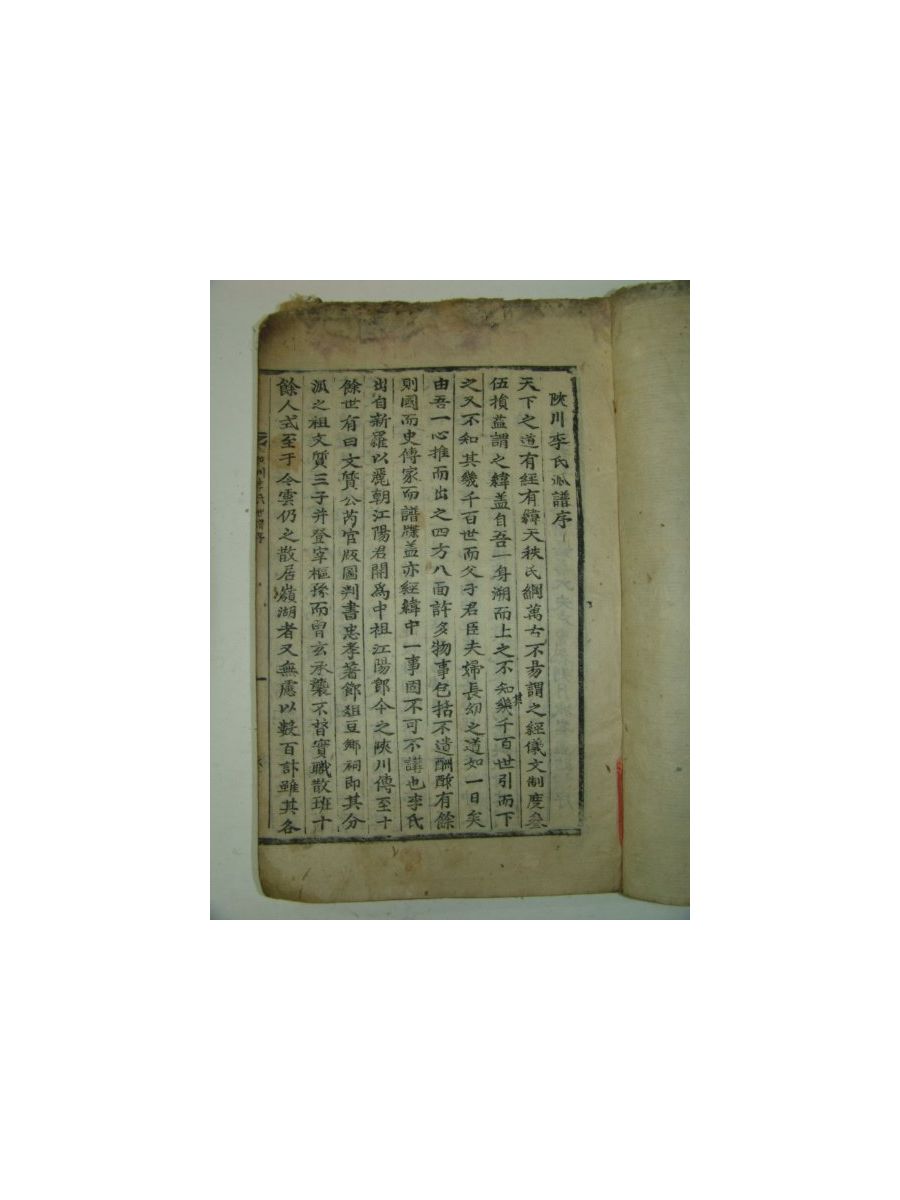 陜川李氏派譜序
天下之道有經有緯天秩民綱萬古不易謂之經儀文制度叅
伍損益謂之緯盖自吾一身溯而上之不知其幾千百世引而下
之又不知其幾千百世而父子君臣夫婦長幼之道如一日矣
由吾一心推而出之四方八面許多物事包括不遺酬酢有餘
則國而史傳家而譜牒盖亦經緯中一事固不可不講也李氏
出自新羅以麗朝江陽君開爲中祖江陽卽今之陜川傳至十
餘世有曰文質公芮官版圖判書忠孝著節俎豆鄉祠即其分
派之祖文質三子并登宰樞孫而曾玄承襲不替實職散班十
餘人式至于今雲仍之散居嶺湖者又無慮以數百計雖其各